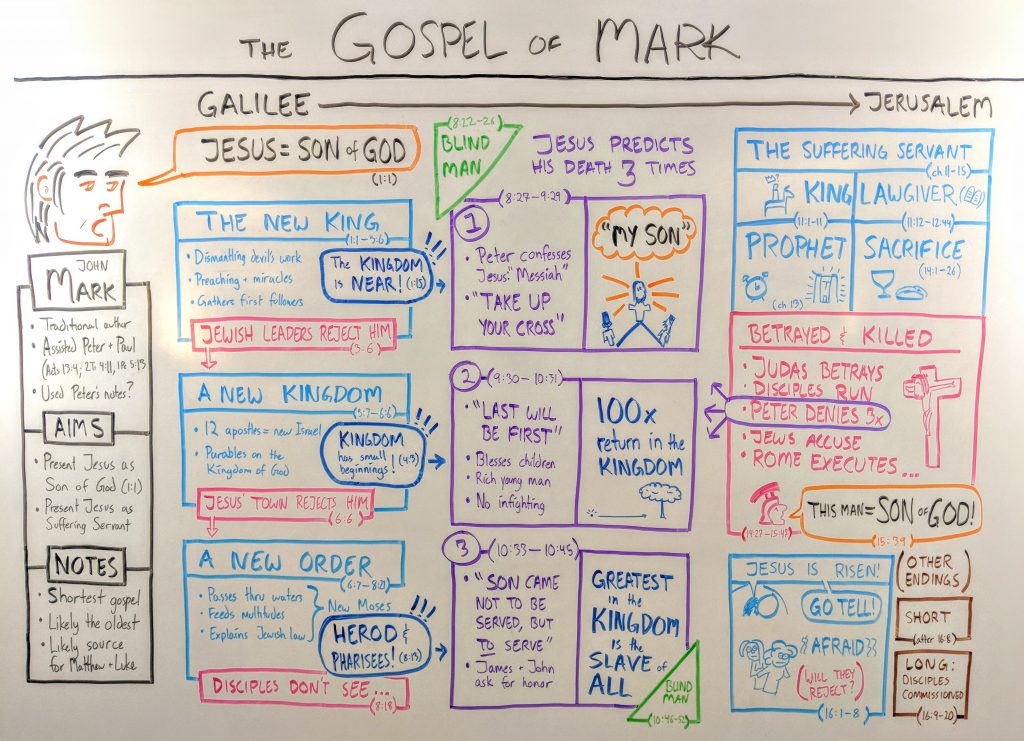 THE GOSPEL OF MARK
GALILEE
JERUSALEM
JESUS = SON of GOD
(1:1)
JOHN
MARK
• Traditional author
• Assisted Peter + Paul
(Acts 13:4; 2Ti 4:11, 1Pe 5:13
• Used Peter's notes?
AIMS
• Present Jesus as
Son of God (1:1)
• Present Jesus as
Suffering Servant
NOTES
• Shortest gospel
• Likely the oldest
• Likely source
for Matthew + Luke
THE NEW KING
(1:1-3:6)
• Dismantling devil's work
• Preaching + miracles
• Gathers first followers
The KINGDOM
is NEAR! (1:15)
JEWISH LEADERS REJECT HIM
(3:6)
A NEW KINGDOM
(3:7-6:6)
• 12 apostles = new Israel
• Parables on the
Kingdom of God
KINGDOM
has small
beginnings! (4:3)
JESUS' TOWN REJECTS HIM
(6:6)
A NEW ORDER
(6:7-8:21)
• Passes thru waters
• Feeds multitudes
• Explains Jewish law
New Moses
HEROD &
PHARISEES! (8:15)
DISCIPLES DON'T SEE...
(8:18)
(8:22-26)
BLIND
MAN
JESUS PREDICTS
HIS DEATH 3 TIMES
1
(8:27-9:29)
• Peter confesses
Jesus: "Messiah"
• "TAKE UP
YOUR CROSS"
"MY SON"
2
(9:30-10:31)
• "LAST WILL
BE FIRST"
• Blesses children
• Rich young man
• No infighting
100x
return in the
KINGDOM
3
(10:33-10:45)
• "SON CAME
NOT TO BE
SERVED, BUT
TO SERVE"
• James + John
ask for honor
GREATEST
in the
KINGDOM
is the
SLAVE of
ALL
BLIND
MAN
(10:46-52)
THE SUFFERING SERVANT
(ch 11-15)
KING
(11:1-11)
LAWGIVER
(11:12-12:44)
PROPHET
(ch 13)
SACRIFICE
(14:1-26)
BETRAYED & KILLED
• JUDAS BETRAYS
• DISCIPLES RUN
• PETER DENIES 3x
• JEWS ACCUSE
• ROME EXECUTES...
(14:27-15:43)
THIS MAN = SON OF GOD!
(15:39)
JESUS IS RISEN!
GO TELL!
AFRAID
(WILL THEY
REJECT?)
(16:1-8)
(OTHER
ENDINGS)
SHORT
(after 16:8)
LONG:
DISCIPLES
COMMISSIONED
(16:9-20)